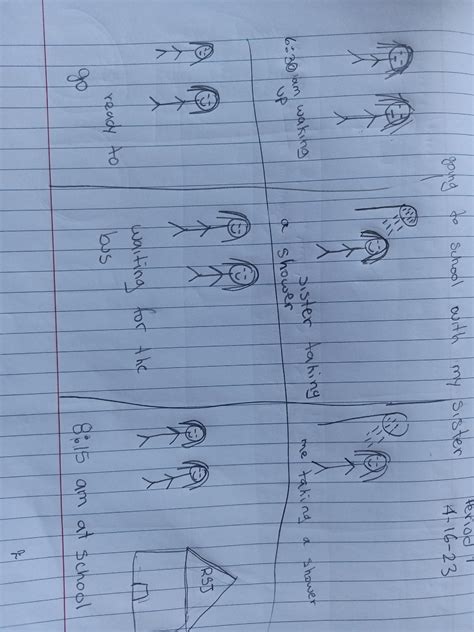 Period
4-16-23
going to school with my sister
6:30 am waking
up
sister taking
a shower
me taking a shower
ready to
go
waiting for the
bus
RSJ
8:15 am at school